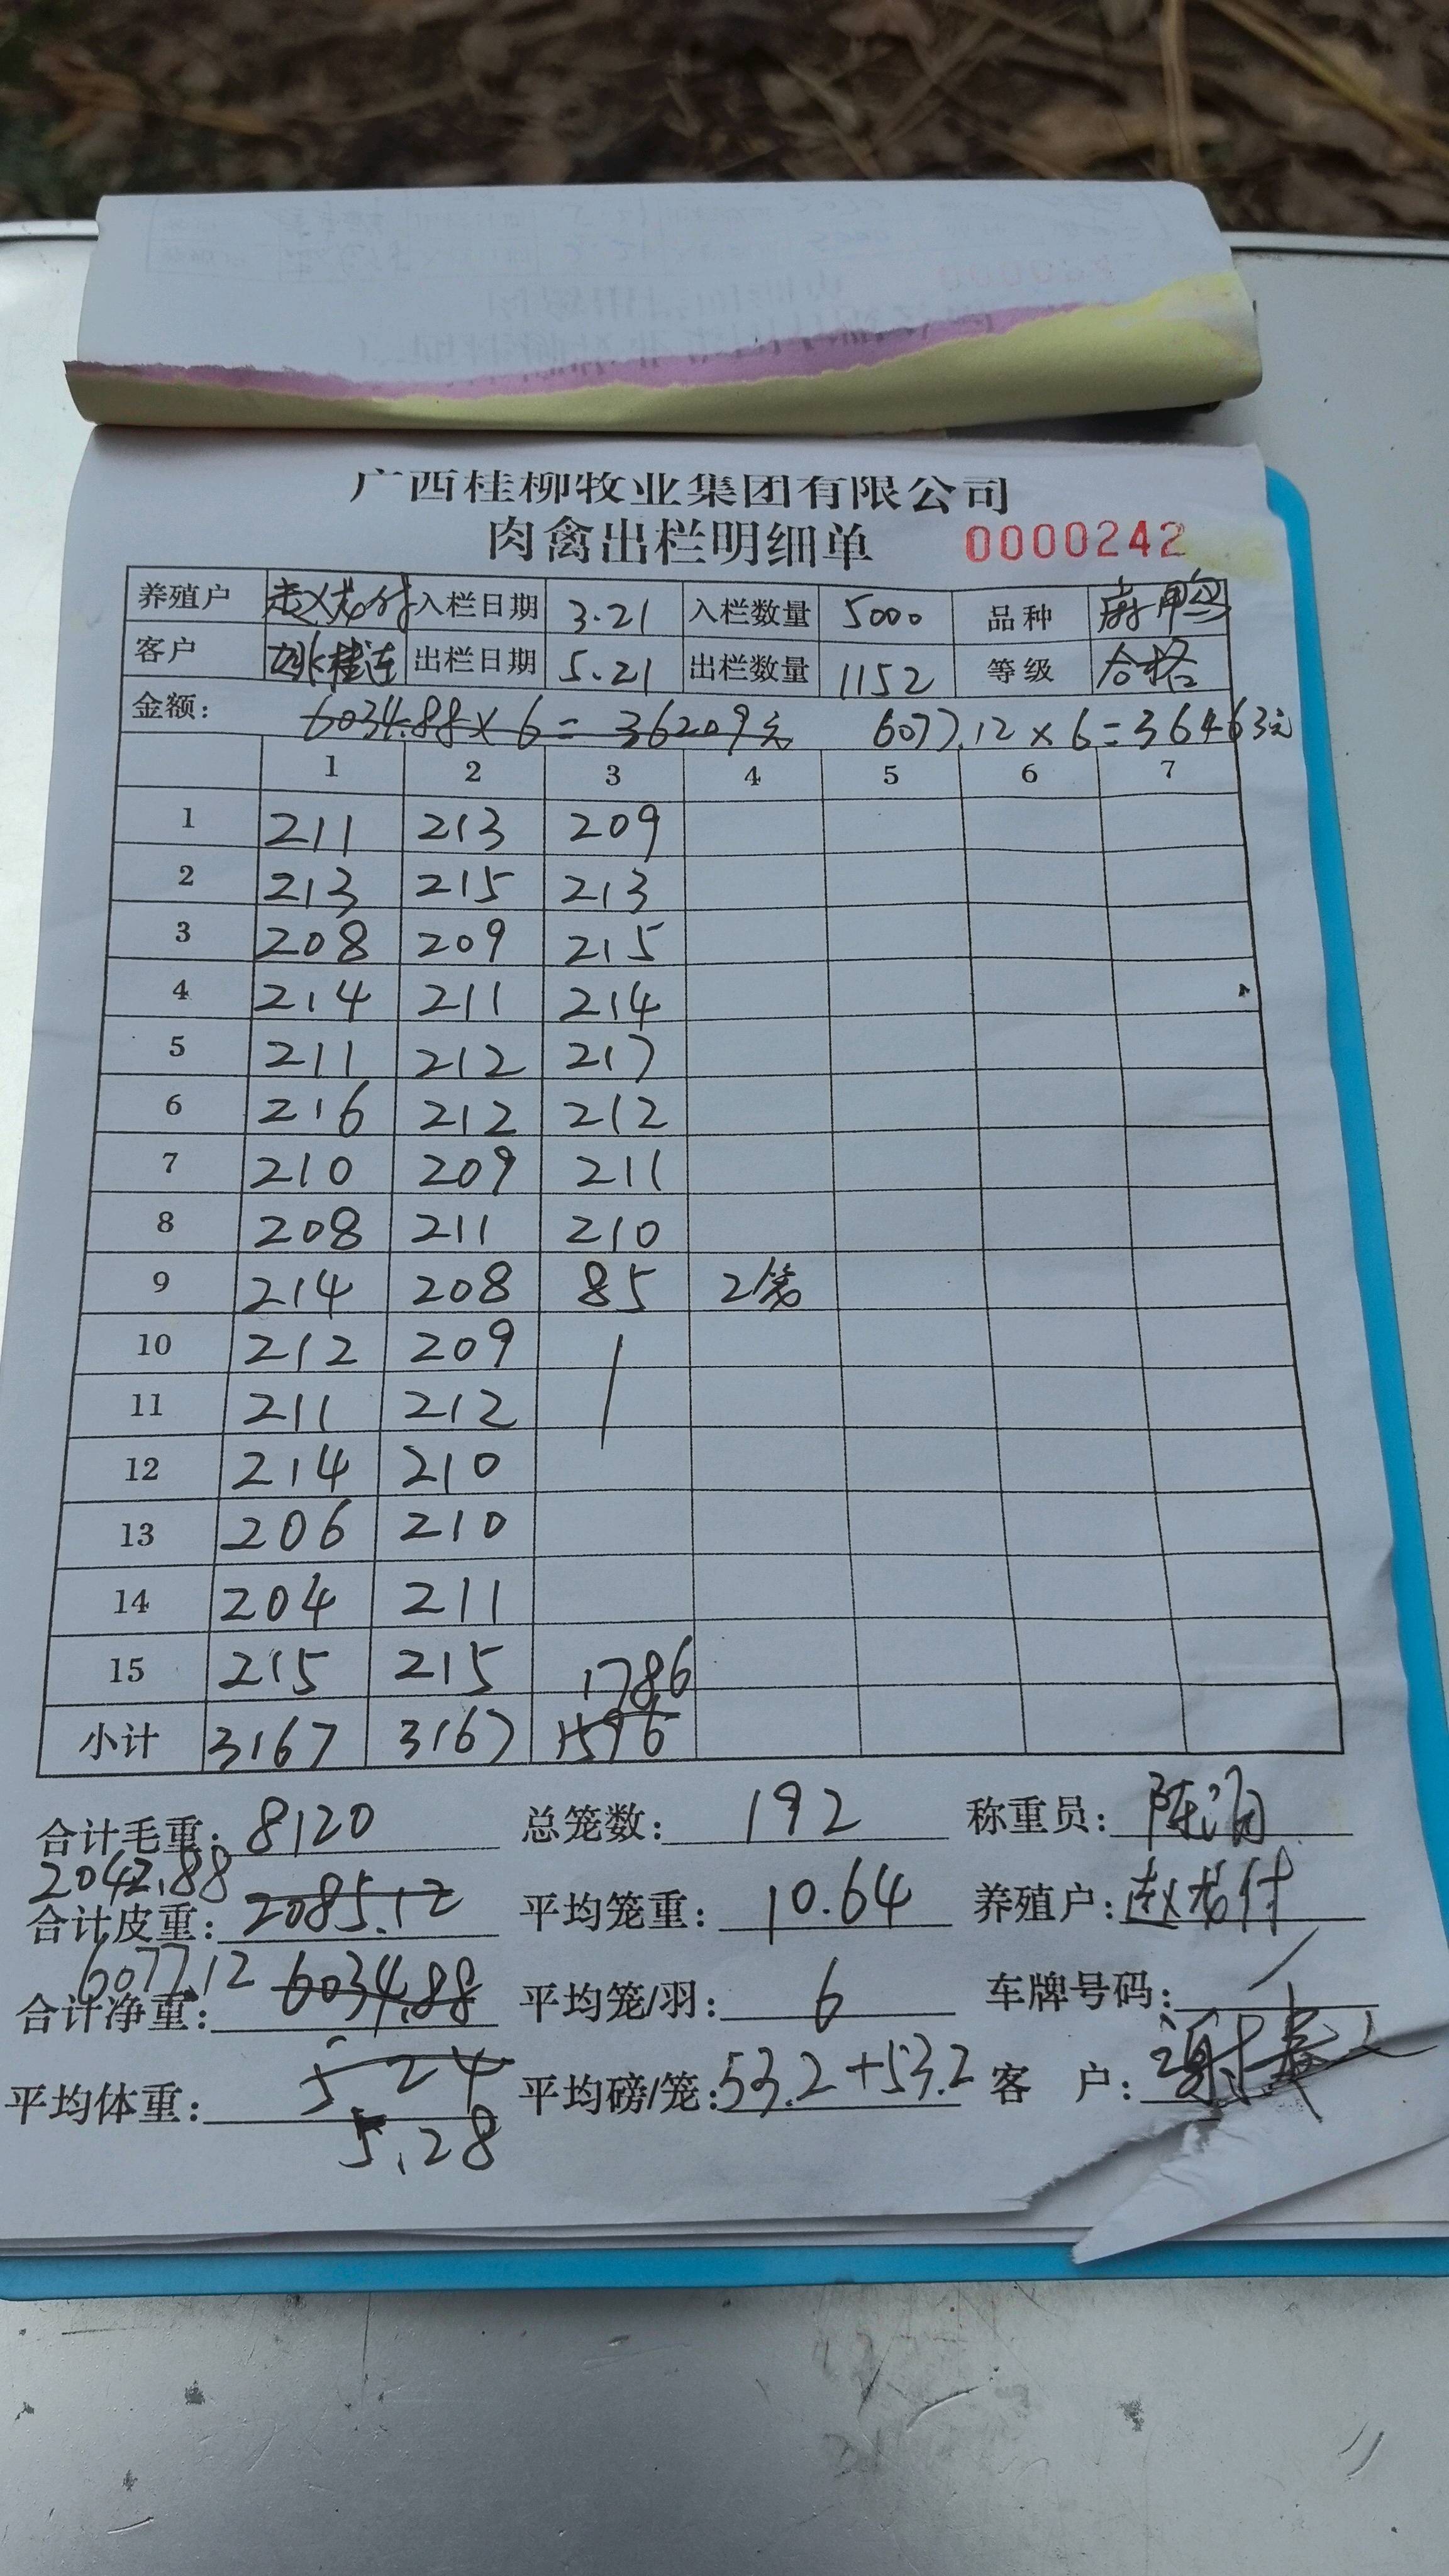 广西桂柳牧业集团有限公司
肉禽出栏明细单 0000242
养殖户 赵龙付 入栏日期 3.21 入栏数量 5000 品种 麻鸭
客户 姚桂连 出栏日期 5.21 出栏数量 1152 等级 合格
金额: 6034.88×6=36209元 6077.12×6=36463元
1 2 3 4 5 6 7
1 211 213 209
2 213 215 213
3 208 209 215
4 214 211 214
5 211 212 217
6 216 212 212
7 210 209 211
8 208 211 210
9 214 208 85 2笼
10 212 209
11 211 212
12 214 210
13 206 210
14 204 211
15 215 215 1786
小计 3167 3167 1596
合计毛重: 8120 总笼数: 192 称重员: 陈
2042.88
合计皮重: 2085.12 平均笼重: 10.64 养殖户: 赵龙付
6077.12
合计净重: 6034.88 平均笼/羽: 6 车牌号码: /
平均体重: 5.24 平均磅/笼: 53.2+53.2 客 户: 谢
5.28